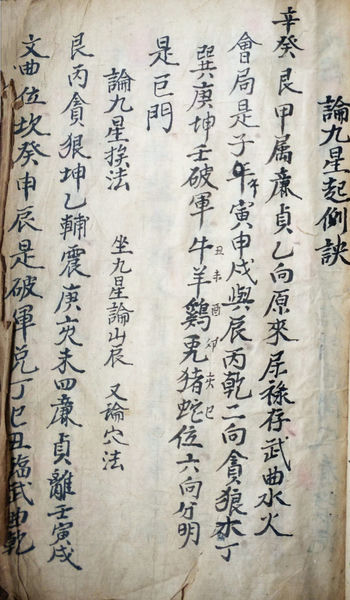 論九星起例訣
辛癸艮甲属廉貞乙向原來居祿存武曲水火
會局是子午寅申戌與辰丙乾二向貪狼水丁
巽庚坤壬破軍牛丑羊未鷄酉兎卯猪亥蛇巳位六向分明
是巨門
論九星挨法 坐九星論山辰 又論穴法
艮丙貪狼坤乙輔震庚亥未四廉貞離壬寅戌
文曲位坎癸申辰是破軍兑丁巳丑臨武曲乾